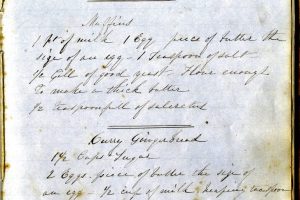 Muffins
1 pt of milk 1 Egg piece of butter the
size of an egg - 1 Teaspoon of salt
½ Gill of good yeast - Flour enough
to make a thick batter
½ teaspoonfull of salaratus
Curry Gingerbread
1½ Cups Sugar
2 Eggs. piece of butter the size of
an egg - ½ cup of milk heaping teaspoon